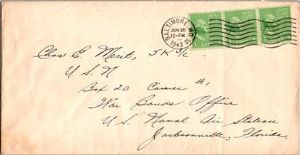 BALTIMORE, MD.
JUN 26
12-PM
1943
Chas E. Meritt, SK 3/c
U.S.N
Box 20 Courier #1,
War Bonds Office
U.S. Naval Air Station
Jacksonville, Florida